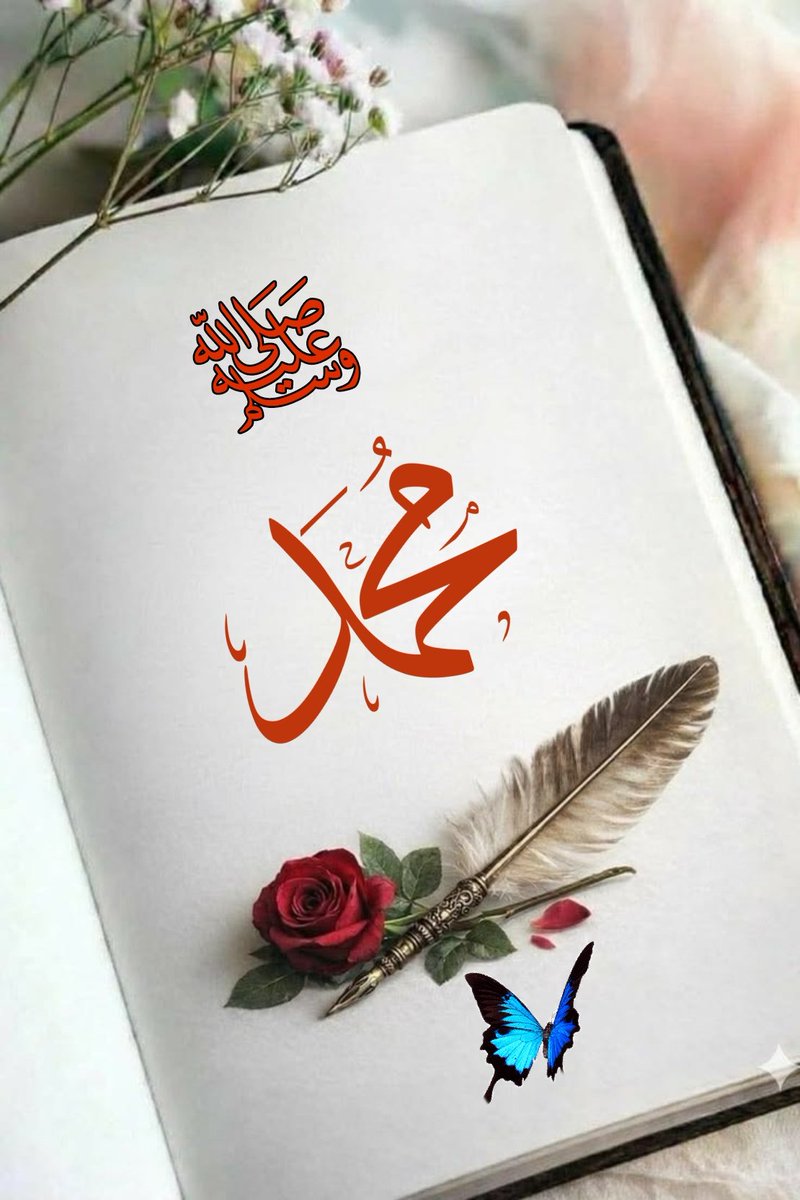 صَلَّى اللهُ
عليه
وسلم
مُحَمَّد